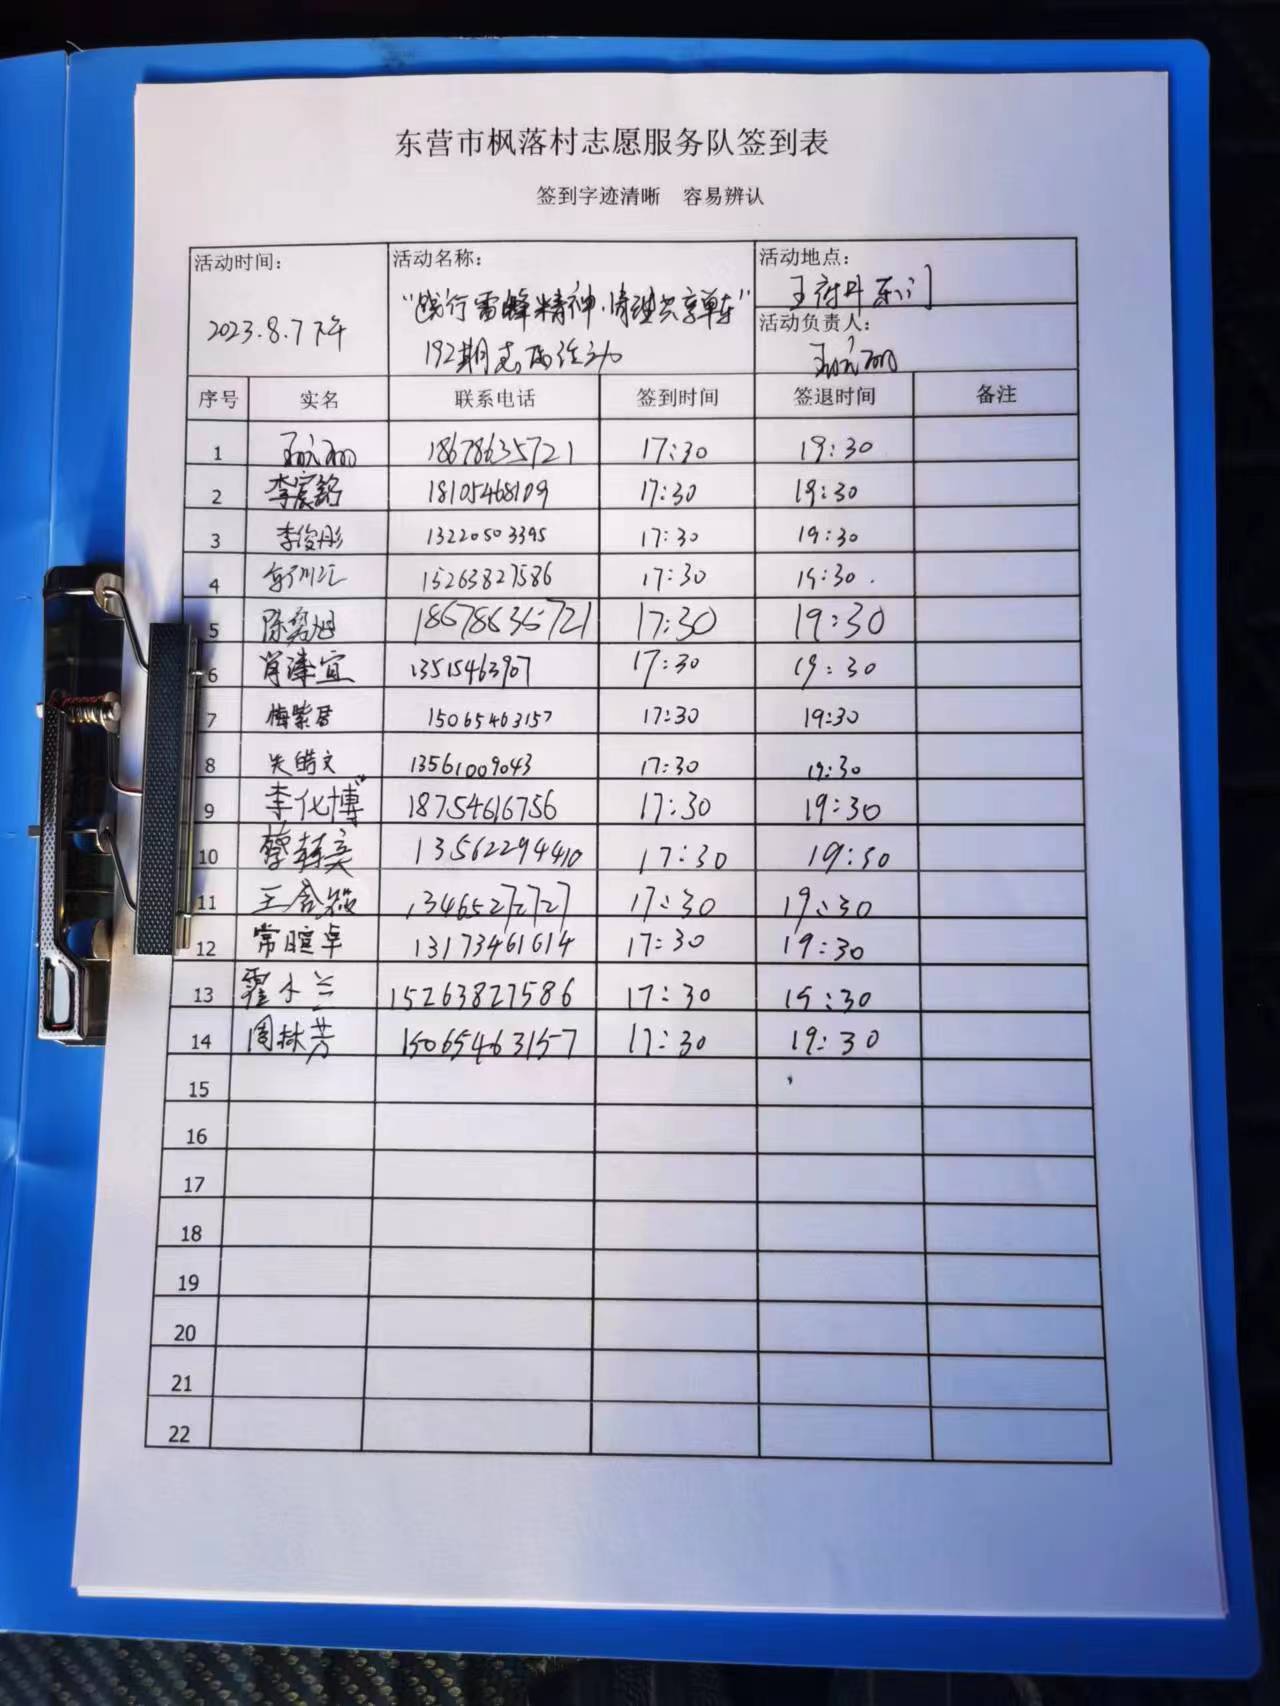 东营市枫落村志愿服务队签到表
签到字迹清晰 容易辨认
活动时间： 活动名称： 活动地点：
"践行雷锋精神·清理共享单车" 东门
2023.8.7下午 192期志愿活动 活动负责人：
序号 实名 联系电话 签到时间 签退时间 备注
1 18678635721 17:30 19:30
2 李宸铭 18105468109 17:30 19:30
3 李俊彤 13220503395 17:30 19:30
4 15263827586 17:30 19:30
5 陈茗旭 18678635721 17:30 19:30
6 肖溱宜 13515463907 17:30 19:30
7 梅紫君 15065463157 17:30 19:30
8 皓文 13561009043 17:30 19:30
9 李化博 18754616756 17:30 19:30
10 13562294410 17:30 19:30
11 王 13465272727 17:30 19:30
12 常暄卓 13173461614 17:30 19:30
13 霍木兰 15263827586 17:30 19:30
14 周林芳 15065463157 17:30 19:30
15
16
17
18
19
20
21
22